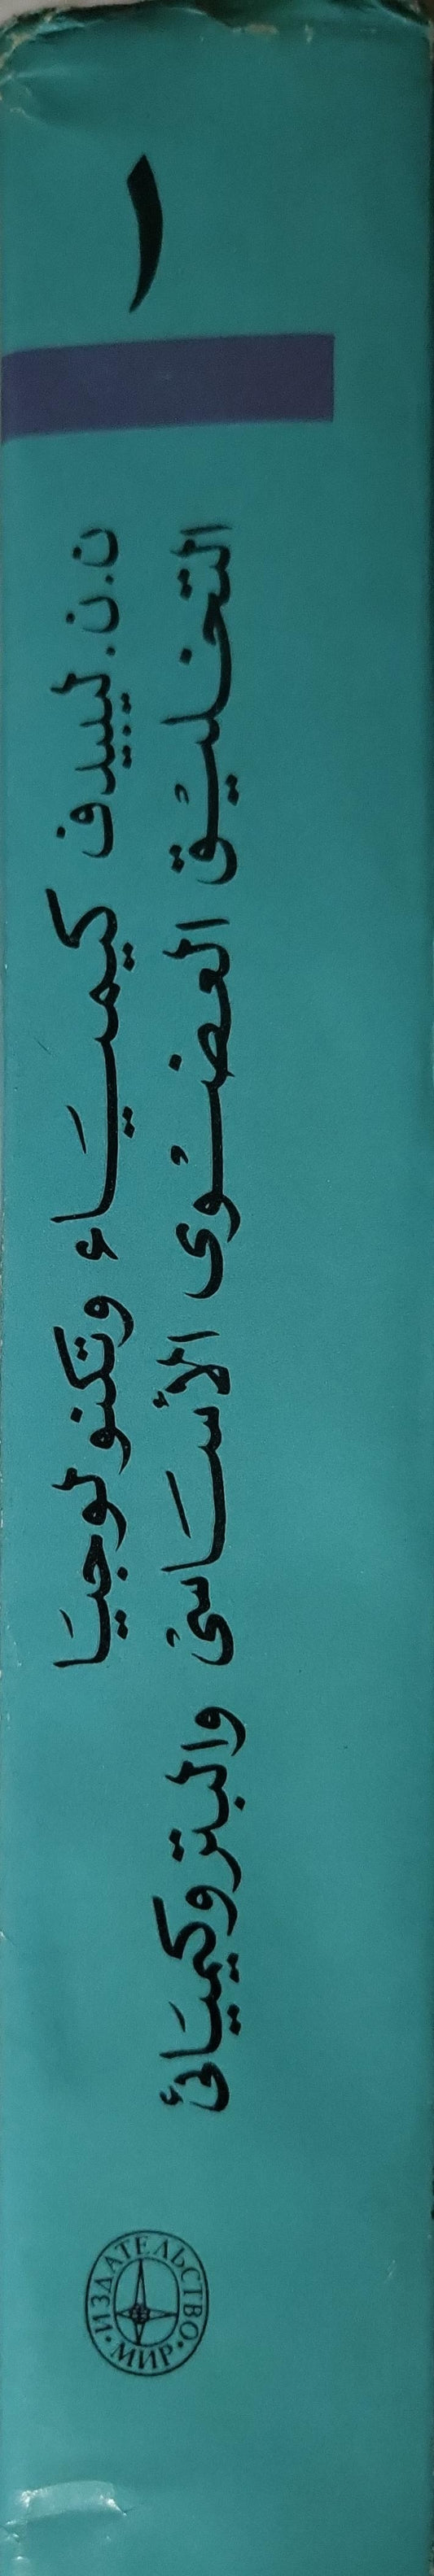 ١
ن. ن. ليبيدف كيمياء وتكنولوجيا
التخليق العضوى الأساسى والبتروكيميائى
ИЗДАТЕЛЬСТВО • МИР •